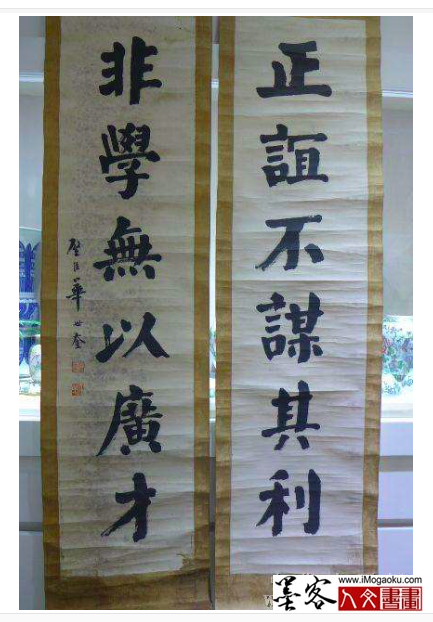 正誼不謀其利
非學無以廣才
璧臣華世奎
www.iMogaoku.com
墨客
人文書畫